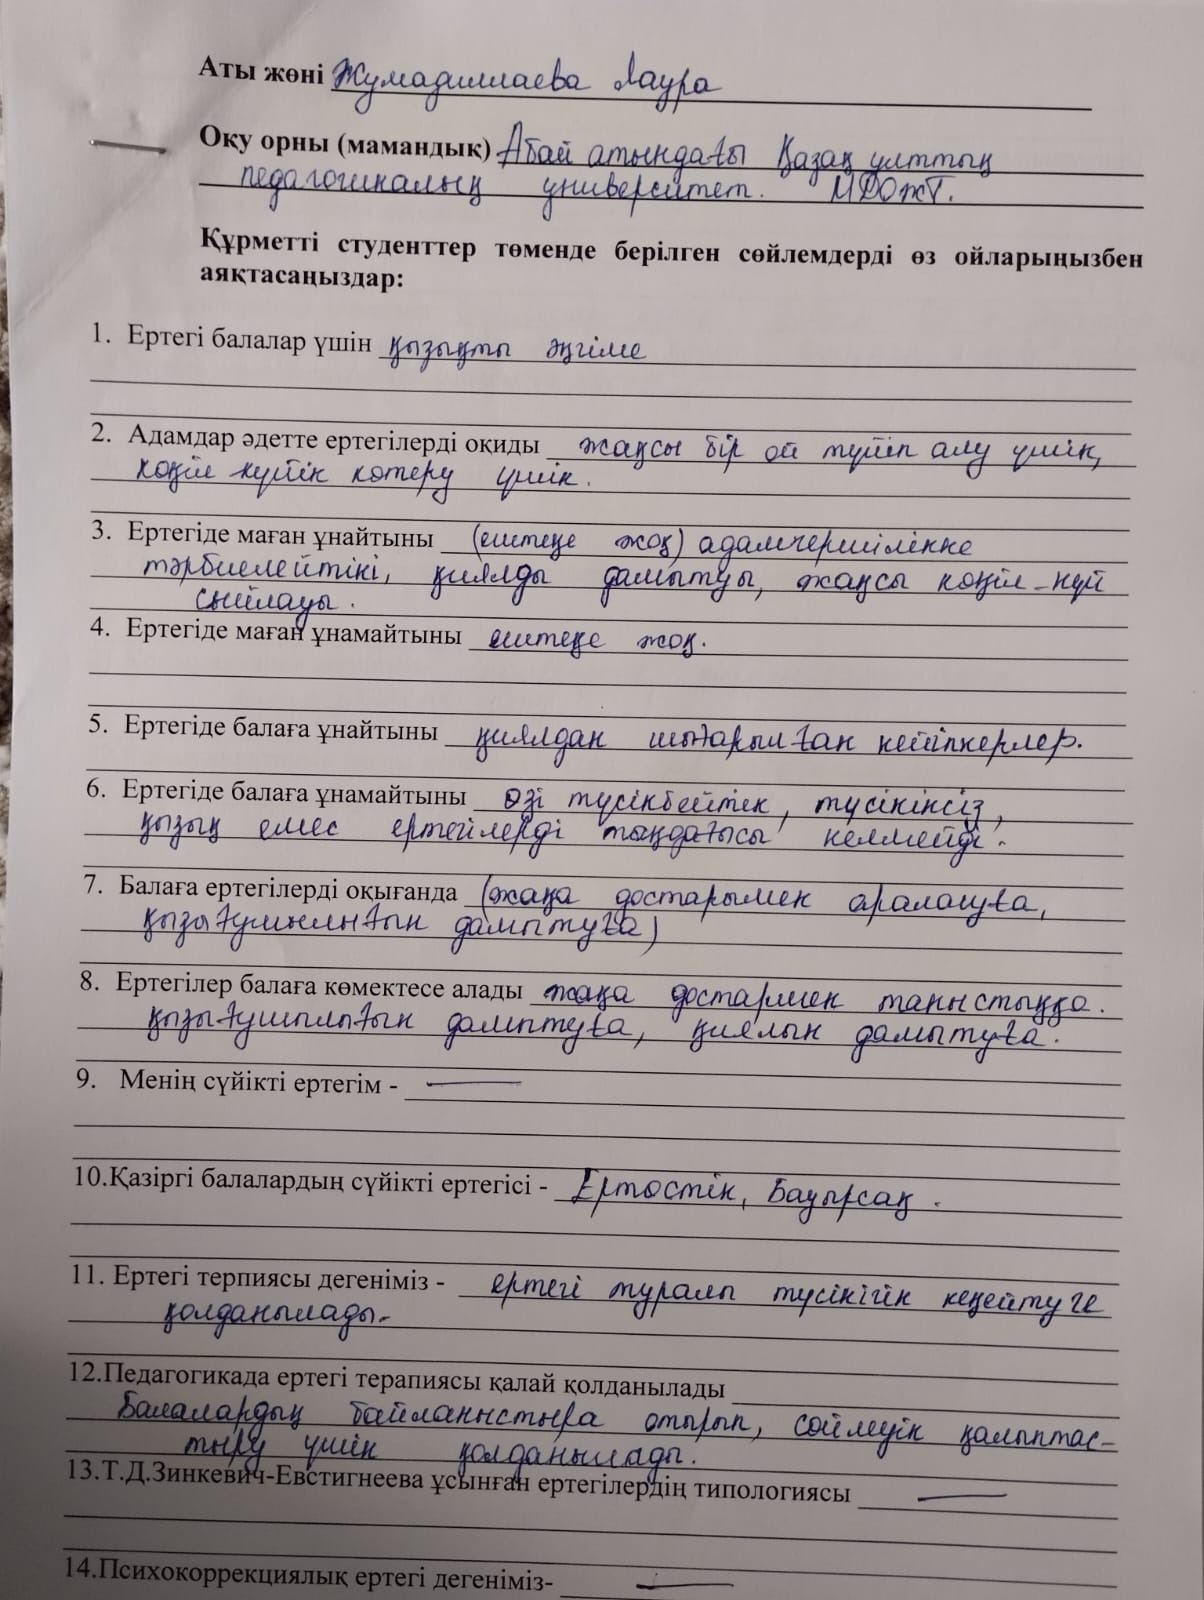 Аты жөні Жумадиллаева Лаура
Оқу орны (мамандық) Абай атындағы Қазақ ұлттық
педагогикалық университет. МДОжТ.
Құрметті студенттер төменде берілген сөйлемдерді өз ойларыңызбен
аяқтасаңыздар:
1. Ертегі балалар үшін қызықты әңгіме
2. Адамдар әдетте ертегілерді оқиды жақсы бір ой түйіп алу үшін,
көңіл күйін көтеру үшін.
3. Ертегіде маған ұнайтыны (ештеңе жоқ) адамгершілікке
тәрбиелейтіні, қиялды дамытуы, жақсы көңіл-күй
сыйлауы.
4. Ертегіде маған ұнамайтыны ештеңе жоқ.
5. Ертегіде балаға ұнайтыны қиялдан шығарылған кейіпкерлер.
6. Ертегіде балаға ұнамайтыны өзі түсінбейтін, түсініксіз,
қызық емес ертегілерді тыңдағысы келмейді.
7. Балаға ертегілерді оқығанда (жаңа достарымен араласуға,
қызығушылығын дамытуға)
8. Ертегілер балаға көмектесе алады жаңа достармен таныстыққа.
қызығушылығын дамытуға, қиялын дамытуға.
9. Менің сүйікті ертегім - —
10.Қазіргі балалардың сүйікті ертегісі - Ертөстік, Бауырсақ.
11. Ертегі терпиясы дегеніміз - ертегі туралы түсінігін кеңейтуге
қолданылады.
12.Педагогикада ертегі терапиясы қалай қолданылады
Балалардың байланыстыра отырып, сөйлеуін қалыптас-
тыру үшін қолданылады.
13.Т.Д.Зинкевич-Евстигнеева ұсынған ертегілердің типологиясы —
14.Психокоррекциялық ертегі дегеніміз- —